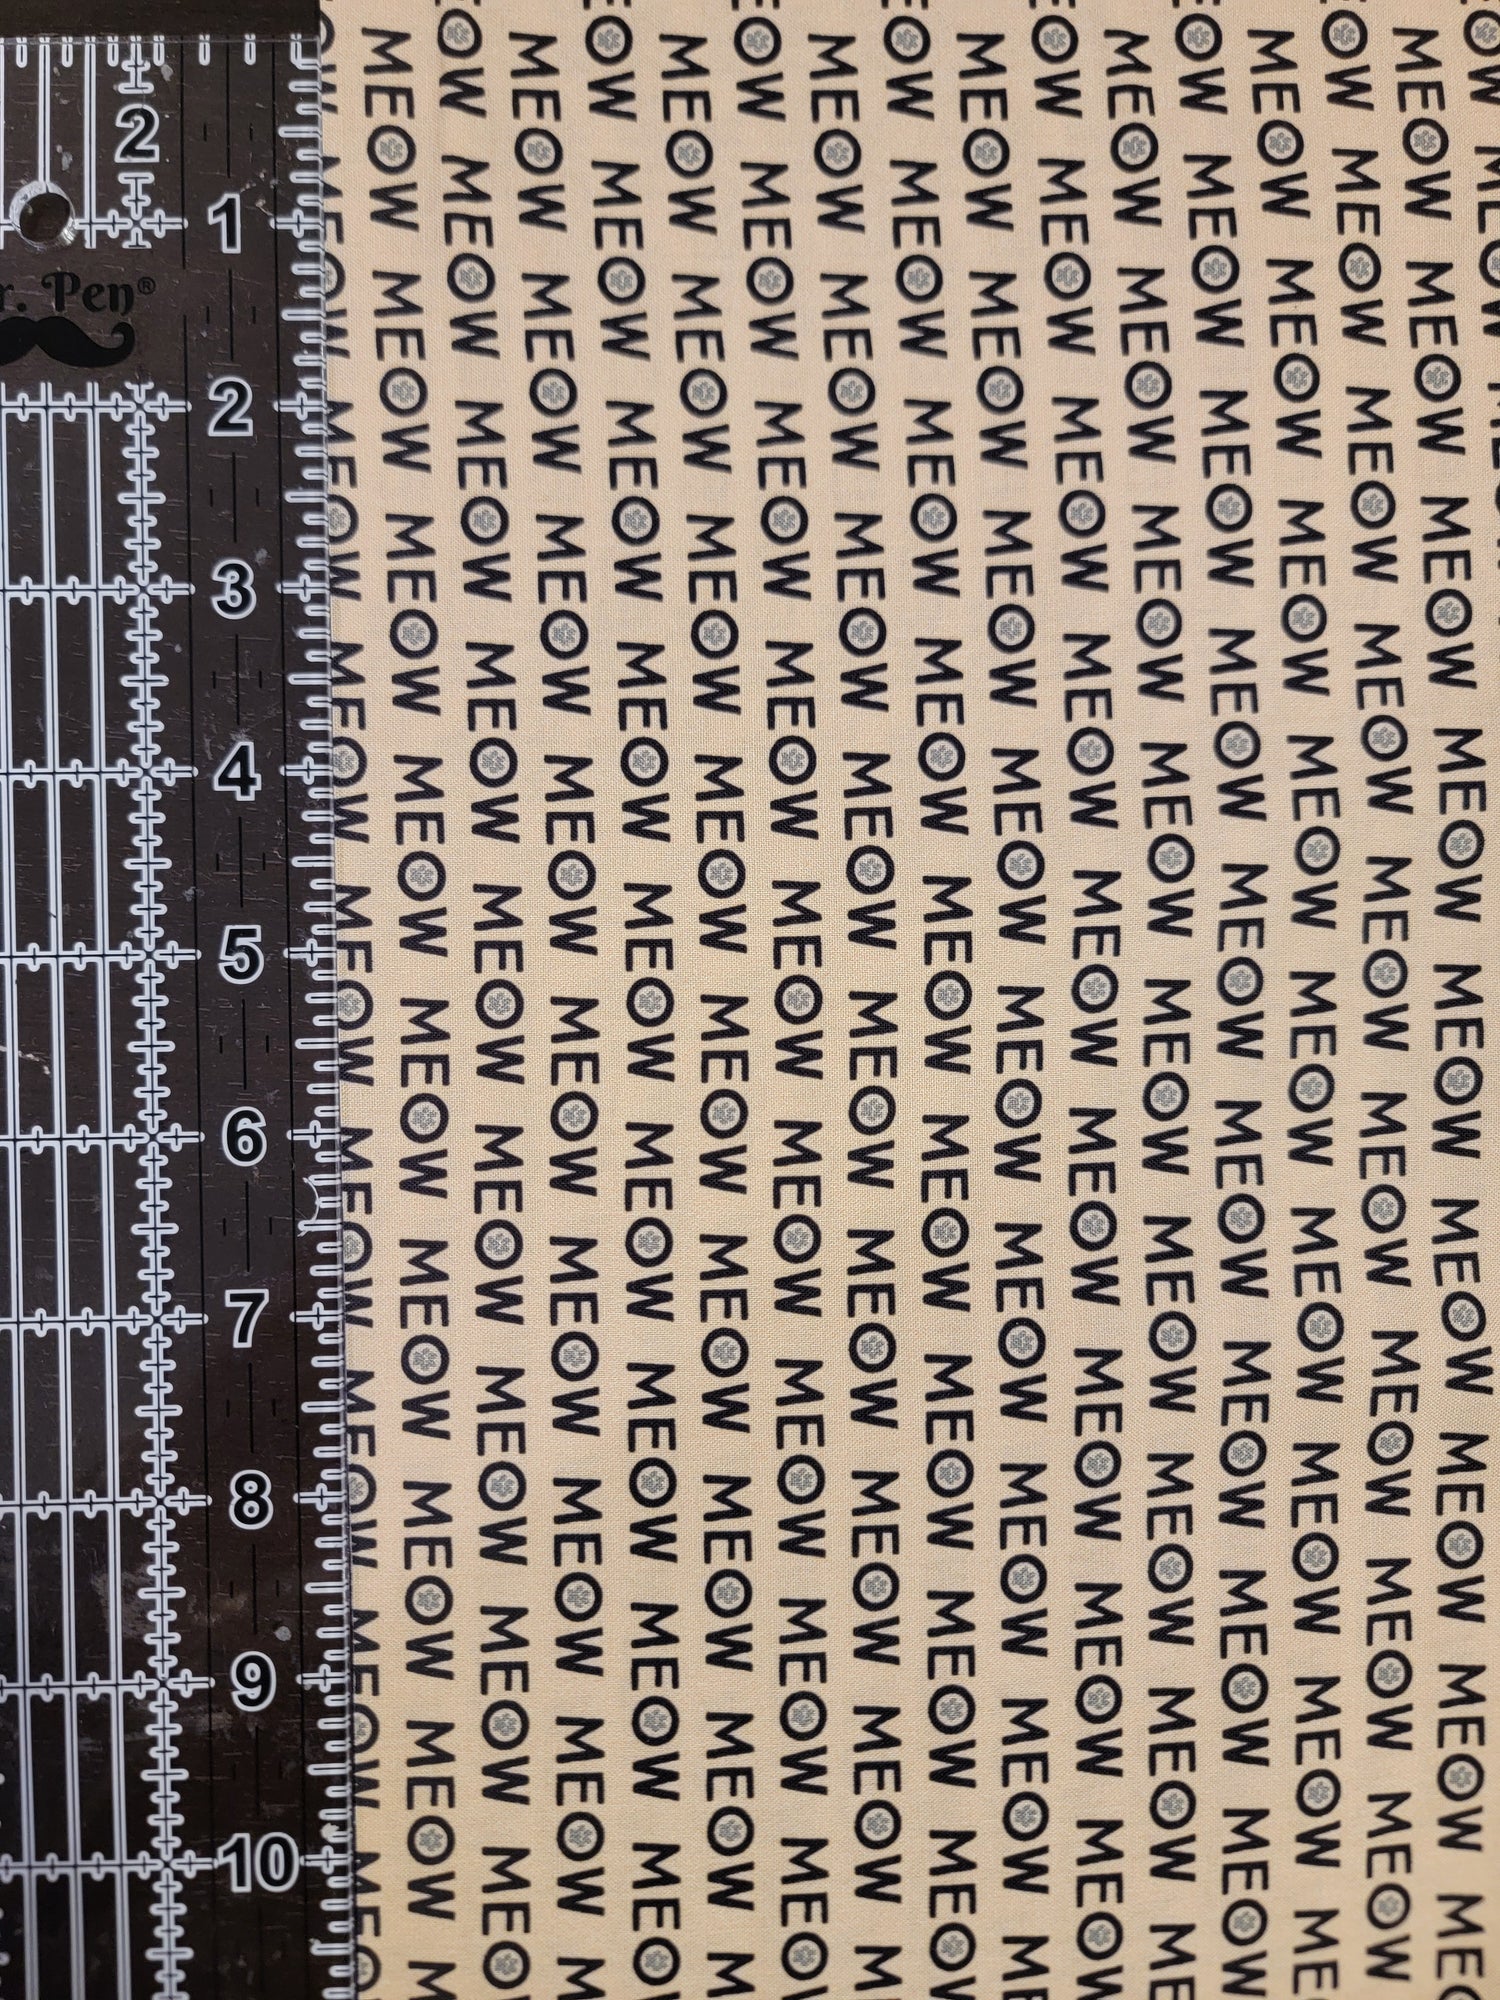 2
r. Pen®
1
2
3
4
5
6
7
8
9
10
OW MEOW MEOW MEOW MEOW MEOW MEOW MEOW MEO
MEOW MEOW MEOW MEOW MEOW MEOW MEOW MEOW M
EOW MEOW MEOW MEOW MEOW MEOW MEOW MEOW MEO
MEOW MEOW MEOW MEOW MEOW MEOW MEOW MEOW M
EOW MEOW MEOW MEOW MEOW MEOW MEOW MEOW MEO
MEOW MEOW MEOW MEOW MEOW MEOW MEOW MEOW M
EOW MEOW MEOW MEOW MEOW MEOW MEOW MEOW MEOW
MEOW MEOW MEOW MEOW MEOW MEOW MEOW MEOW M
EOW MEOW MEOW MEOW MEOW MEOW MEOW MEOW MEO
MEOW MEOW MEOW MEOW MEOW MEOW MEOW MEOW ME
EOW MEOW MEOW MEOW MEOW MEOW MEOW MEOW MEOW
MEOW MEOW MEOW MEOW MEOW MEOW MEOW MEOW ME
EOW MEOW MEOW MEOW MEOW MEOW MEOW MEOW MEOW
MEOW MEOW MEOW MEOW MEOW MEOW MEOW MEOW ME
EOW MEOW MEOW MEOW MEOW MEOW MEOW MEOW MEOW
MEOW MEOW MEOW MEOW MEOW MEOW MEOW MEOW MEO
OW MEOW